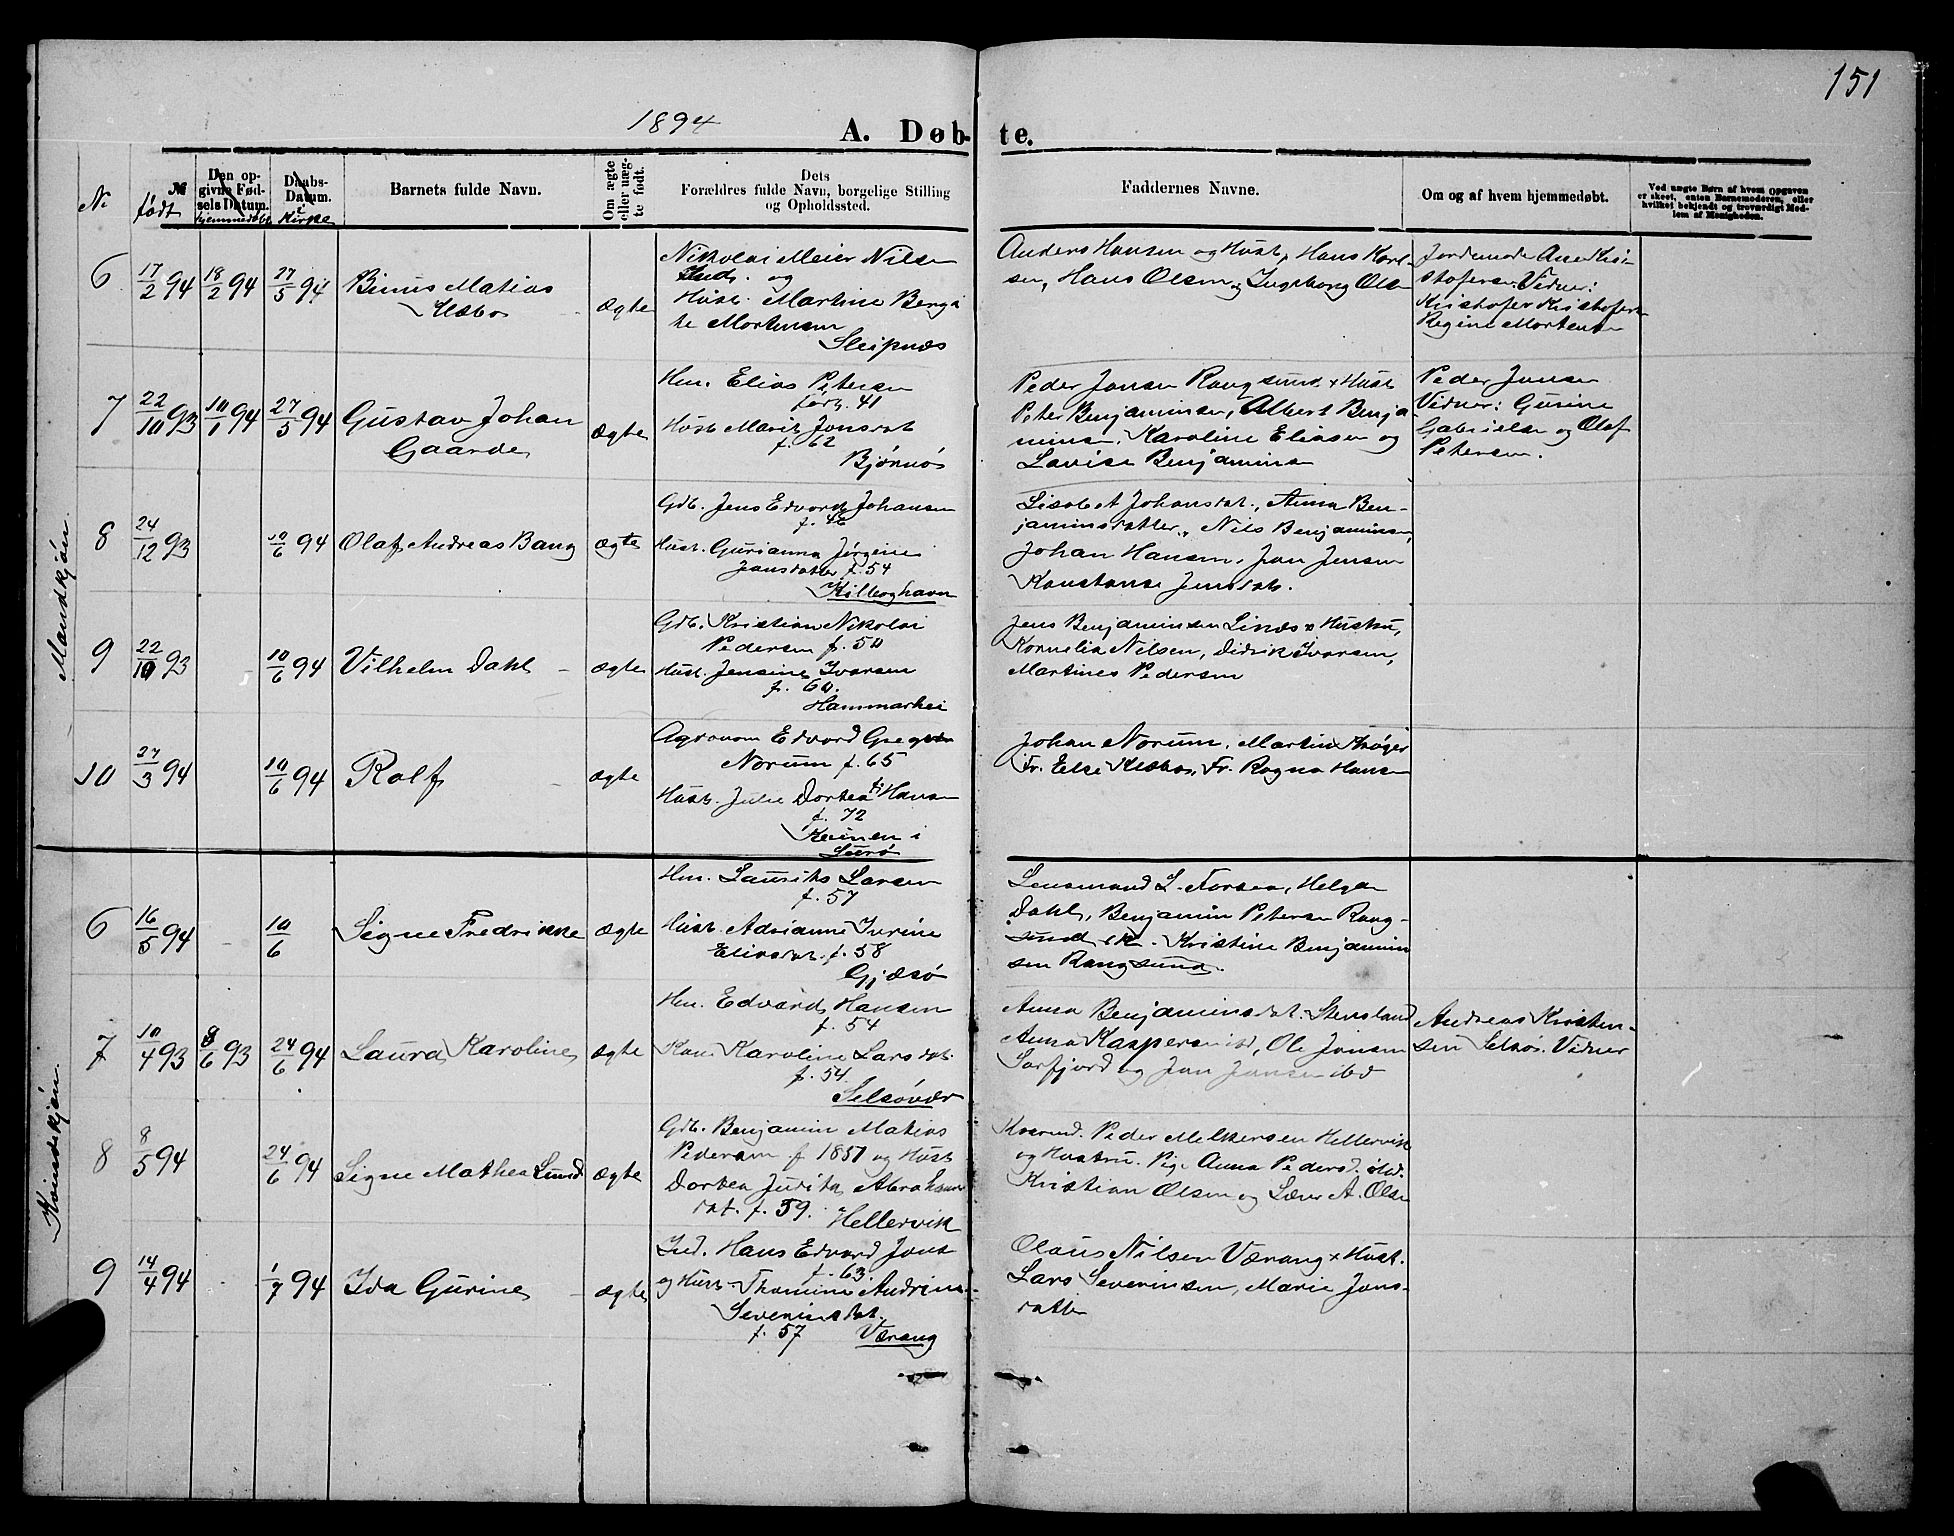 151
1894
A. Døb-te.
Nr.
№ født
Den opgivne Fødsels Datum. hjemmedøbt
Daabs-Datum. i Kirke
Barnets fulde Navn.
Om ægte eller uægte født.
Dets Forældres fulde Navn, borgelige Stilling og Opholdssted.
Faddernes Navne.
Om og af hvem hjemmedøbt.
Ved uægte Børn af hvem Opgaven er skeet, enten Barnemoderen, eller hvilket bekjendt og troværdigt Medlem af Menigheden.
Mandkjøn.
6 17/2 94 18/2 94 27/5 94 Matias
Klæbo ægte
Nikolai Meier Nilsen
Inds. og
Hust. Martine Bergi
te Mortensen
Sleipnæs
Anders Hansen og Hust, Hans Karl-
sen, Hans Olsen og Ingeborg Olsen
Jordemode Ane Kri-
stofersen Vidner:
Kristofer Kristofers
Regine Mortensen
7 22/10 93 10/1 94 27/5 94 Gustav Johan
Gaarde ægte
Hm. Elias Petersen
født. 41
Hust Marit Jonsdat
f. 62
Bjørnøs
Peder Jonsen Rangsund + Hust
Peter Benjaminsen, Albert Benja-
minsen, Karoline Eliasen og
Lovise Benjaminsen
Peder Jonsen
Vidner: Gurine
Gabrielsen og Olaf
Petersen.
8 24/12 93 10/6 94 Olaf Andreas Bang ægte
Gdb. Jens Edvard Johansen
f. 46
Hust. Gurianna Jørgine
Jonsdatter f. 54
Kilboghavn
Lisabet Johansdat., Anna Ben-
jaminsdatter, Nils Benjaminsen,
Johan Hansen, Jon Jensen
Konstanse Jensdat.
9 22/10 93 - 10/6 94 Vilhelm Dahl - ægte
Gdb. Kristian Nikolai
Pedersen f. 50
Hust. Jensine Ivarsen
f. 60.
Hammarhei
Jens Benjaminsen Sinæs + Hustru,
Kornelia Nilsen, Didrik Ivarsen,
Martines Pedersen
10 27/3 94 10/6 94 Rolf ægte
Agronom Edvard
Norum f. 65
Hust. Julie Dortea f. Hansen
f. 72
i
Lurø
Johan Norum, Martin Krøger
Fr. Else Klæbo, Fr. Ragna Hansen
Kvindekjøn.
6 16/5 94 - 10/6 Signe Fredrikke ægte
Hm. Laurits Larsen
f. 57
Hust. Adrianne Jurine
Eliasdat. f. 58
Gjæsø
Lensmand L. Torsen, Helga
Dahl, Benjamin Petersen Rang-
sund, Kristine Benjamin
sen Rangsund.
7 10/4 93 8/6 93 24/6 94 Laura Karoline ægte
Hm. Edvard Hansen
f. 54
Kone Karoline Larsdat.
f. 54.
Selsøvær
Anna Benjaminsdat. Stensland
Anna Kaspersen ibd, Ole Jonsen
Sørfjord og Jon Jonsen ibd
Andreas Kristen-
sen Selsøv. Vidner
8 8/5 94 24/6 94 Signe Mathea Lund ægte
Gdb. Benjamin Matias
Pedersen f 1851 og Hust
Dortea Judita Abrahams
dat. f. 59. Hellervik
Kvarmd. Peder Melkersen Hellervik
og Hustru. Pig. Anna Pedersd. ibd.
Kristian Olsen og Lærer A. Olsen
9 14/4 94 - 1/7 94 Ida Gurine - ægte
Ind. Hans Edvard Jons
f. 63.
og Hust. Thomine Andrine
Severinsdat.
f. 57 Værang
Olaus Nilsen Værang + Hust.
Lars Severinsen, Marie Jons-
datter